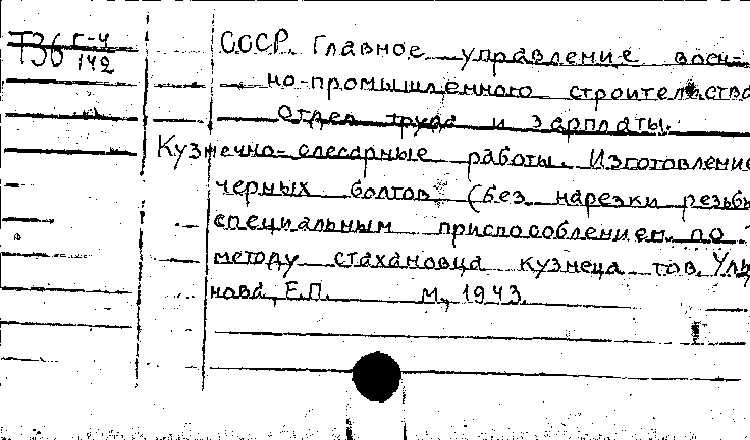 Т36 Г-4
142
СССР. Главное управление воен-
но-промышленного строительства
Отдел труда и зарплаты.
Кузнечно-слесарные работы. Изготовление
черных болтов (без нарезки резьбы
специальным приспособлением по
методу стахановца кузнеца тов. Уль
нова, Е.П. М., 1943.